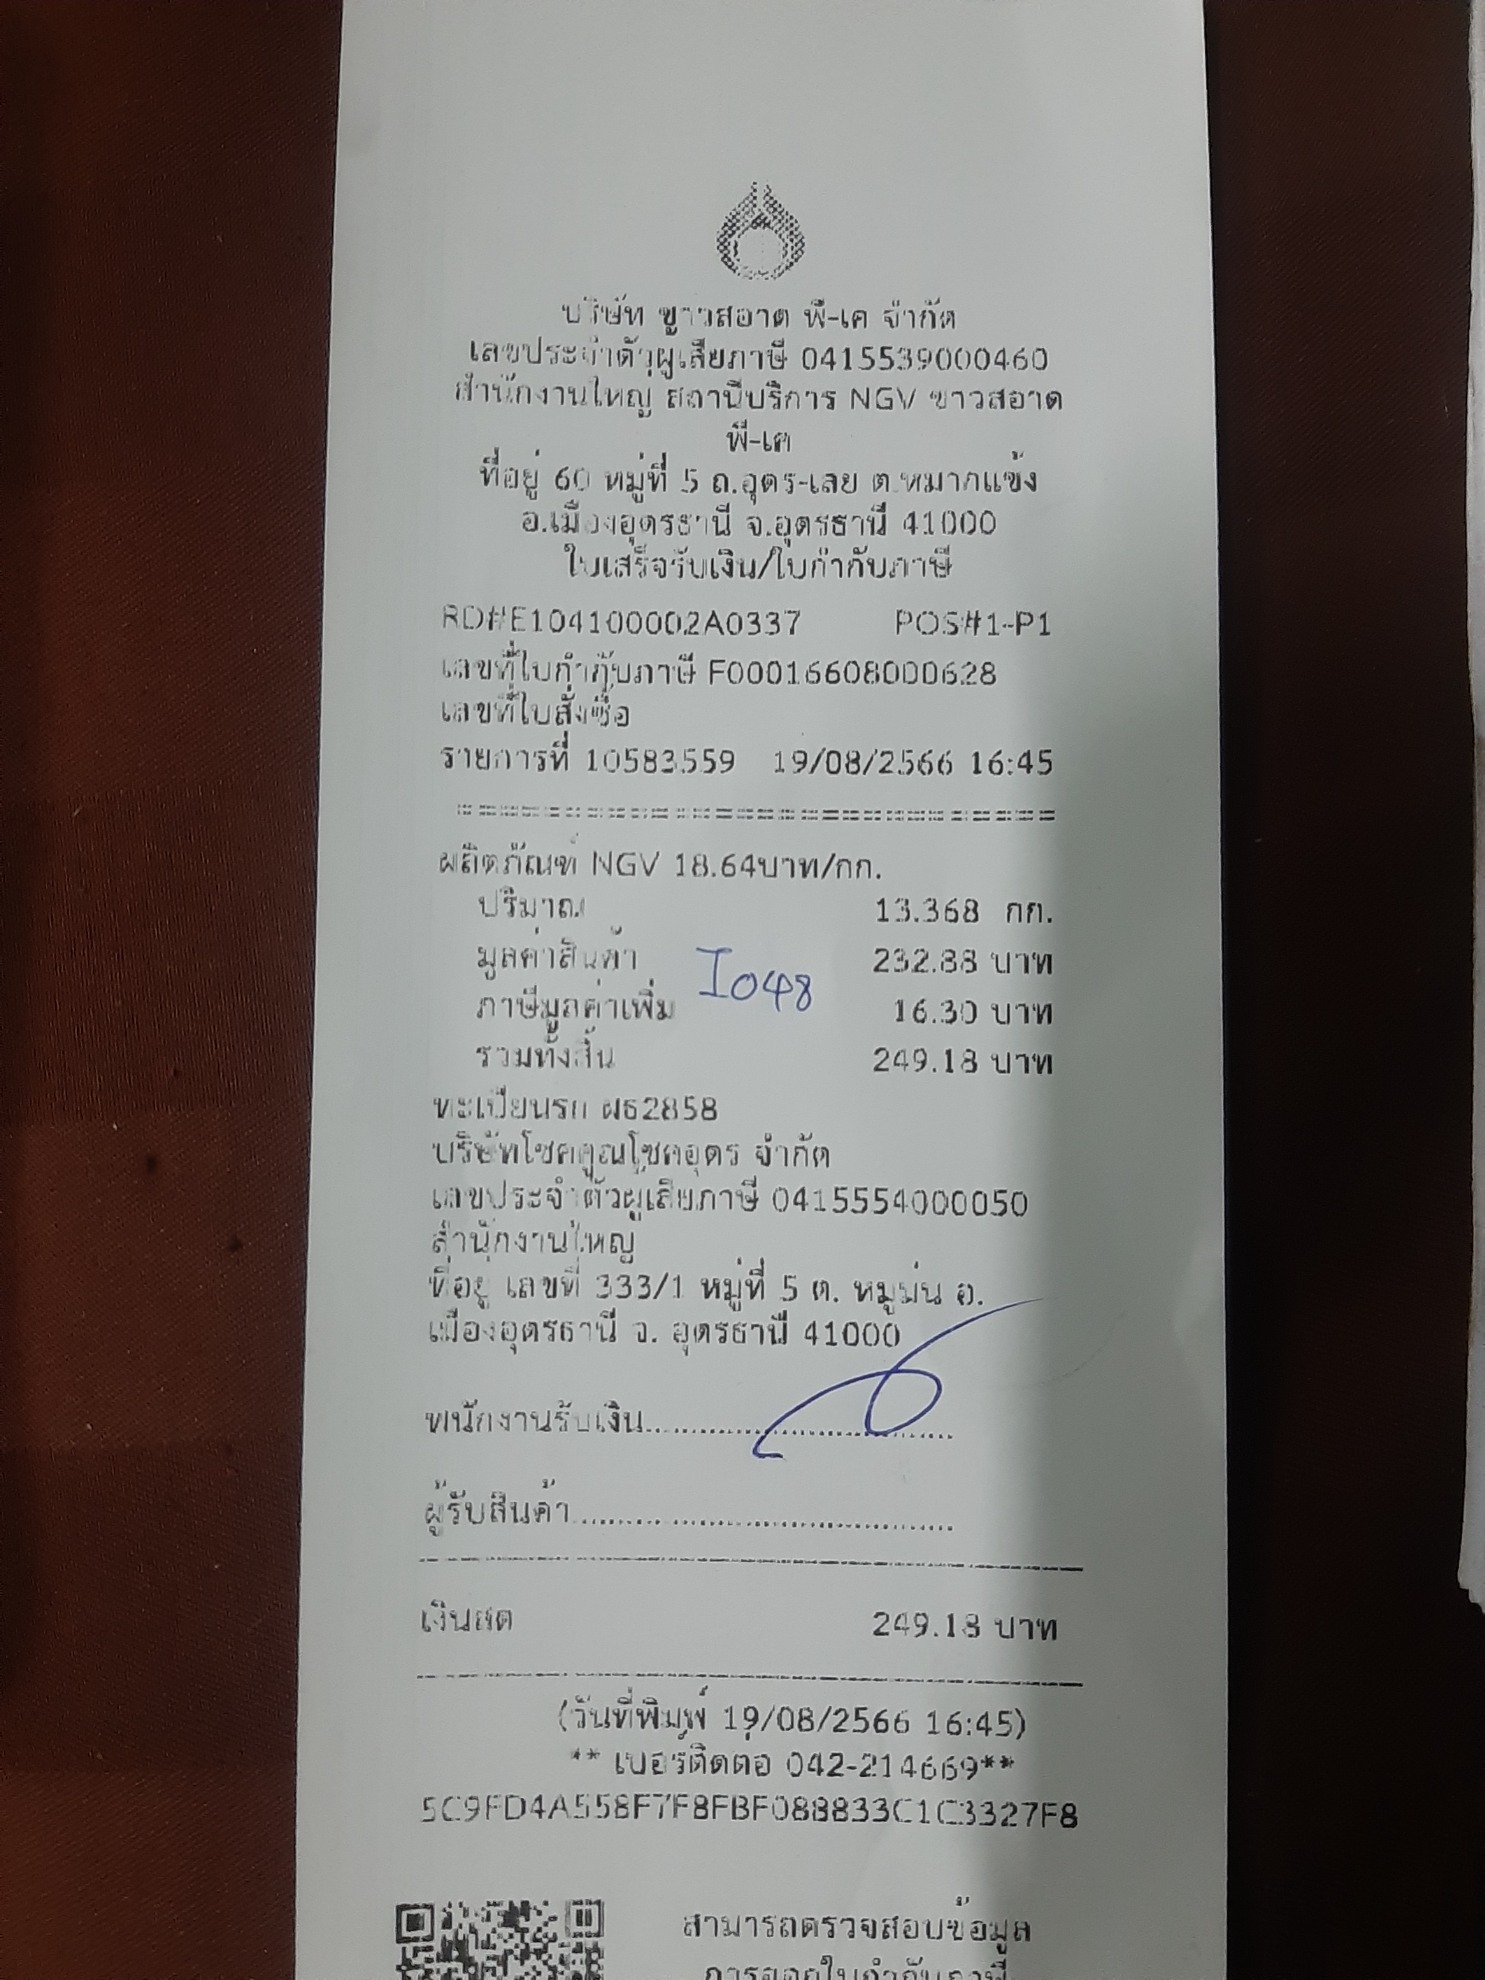 บริษัท ขาวสอาด พี-เค จำกัด
เลขประจำตัวผู้เสียภาษี 0415539000460
สำนักงานใหญ่ สถานีบริการ NGV ขาวสอาด
พี-เค
ที่อยู่ 60 หมู่ที่ 5 ถ.อุดร-เลย ต.หมากแข้ง
อ.เมืองอุดรธานี จ.อุดรธานี 41000
ใบเสร็จรับเงิน/ใบกำกับภาษี
RD#E104100002A0337 POS#1-P1
เลขที่ใบกำกับภาษี F00016608000628
เลขที่ใบสั่งซื้อ
รายการที่ 10583559 19/08/2566 16:45
ผลิตภัณฑ์ NGV 18.64บาท/กก.
ปริมาณ 13.368 กก.
มูลค่าสินค้า 232.88 บาท
I048
ภาษีมูลค่าเพิ่ม 16.30 บาท
รวมทั้งสิ้น 249.18 บาท
ทะเบียนรถ ผธ2858
บริษัทโชคคูณโชคอุดร จำกัด
เลขประจำตัวผู้เสียภาษี 0415554000050
สำนักงานใหญ่
ที่อยู่ เลขที่ 333/1 หมู่ที่ 5 ต. หมูม่น อ.
เมืองอุดรธานี จ. อุดรธานี 41000
พนักงานรับเงิน
ผู้รับสินค้า
เงินสด 249.18 บาท
(วันที่พิมพ์ 19/08/2566 16:45)
** เบอร์ติดต่อ 042-214669**
5C9FD4A558F7F8FBF088833C1C3327F8
สามารถตรวจสอบข้อมูล
การออกใบกำกับภาษี